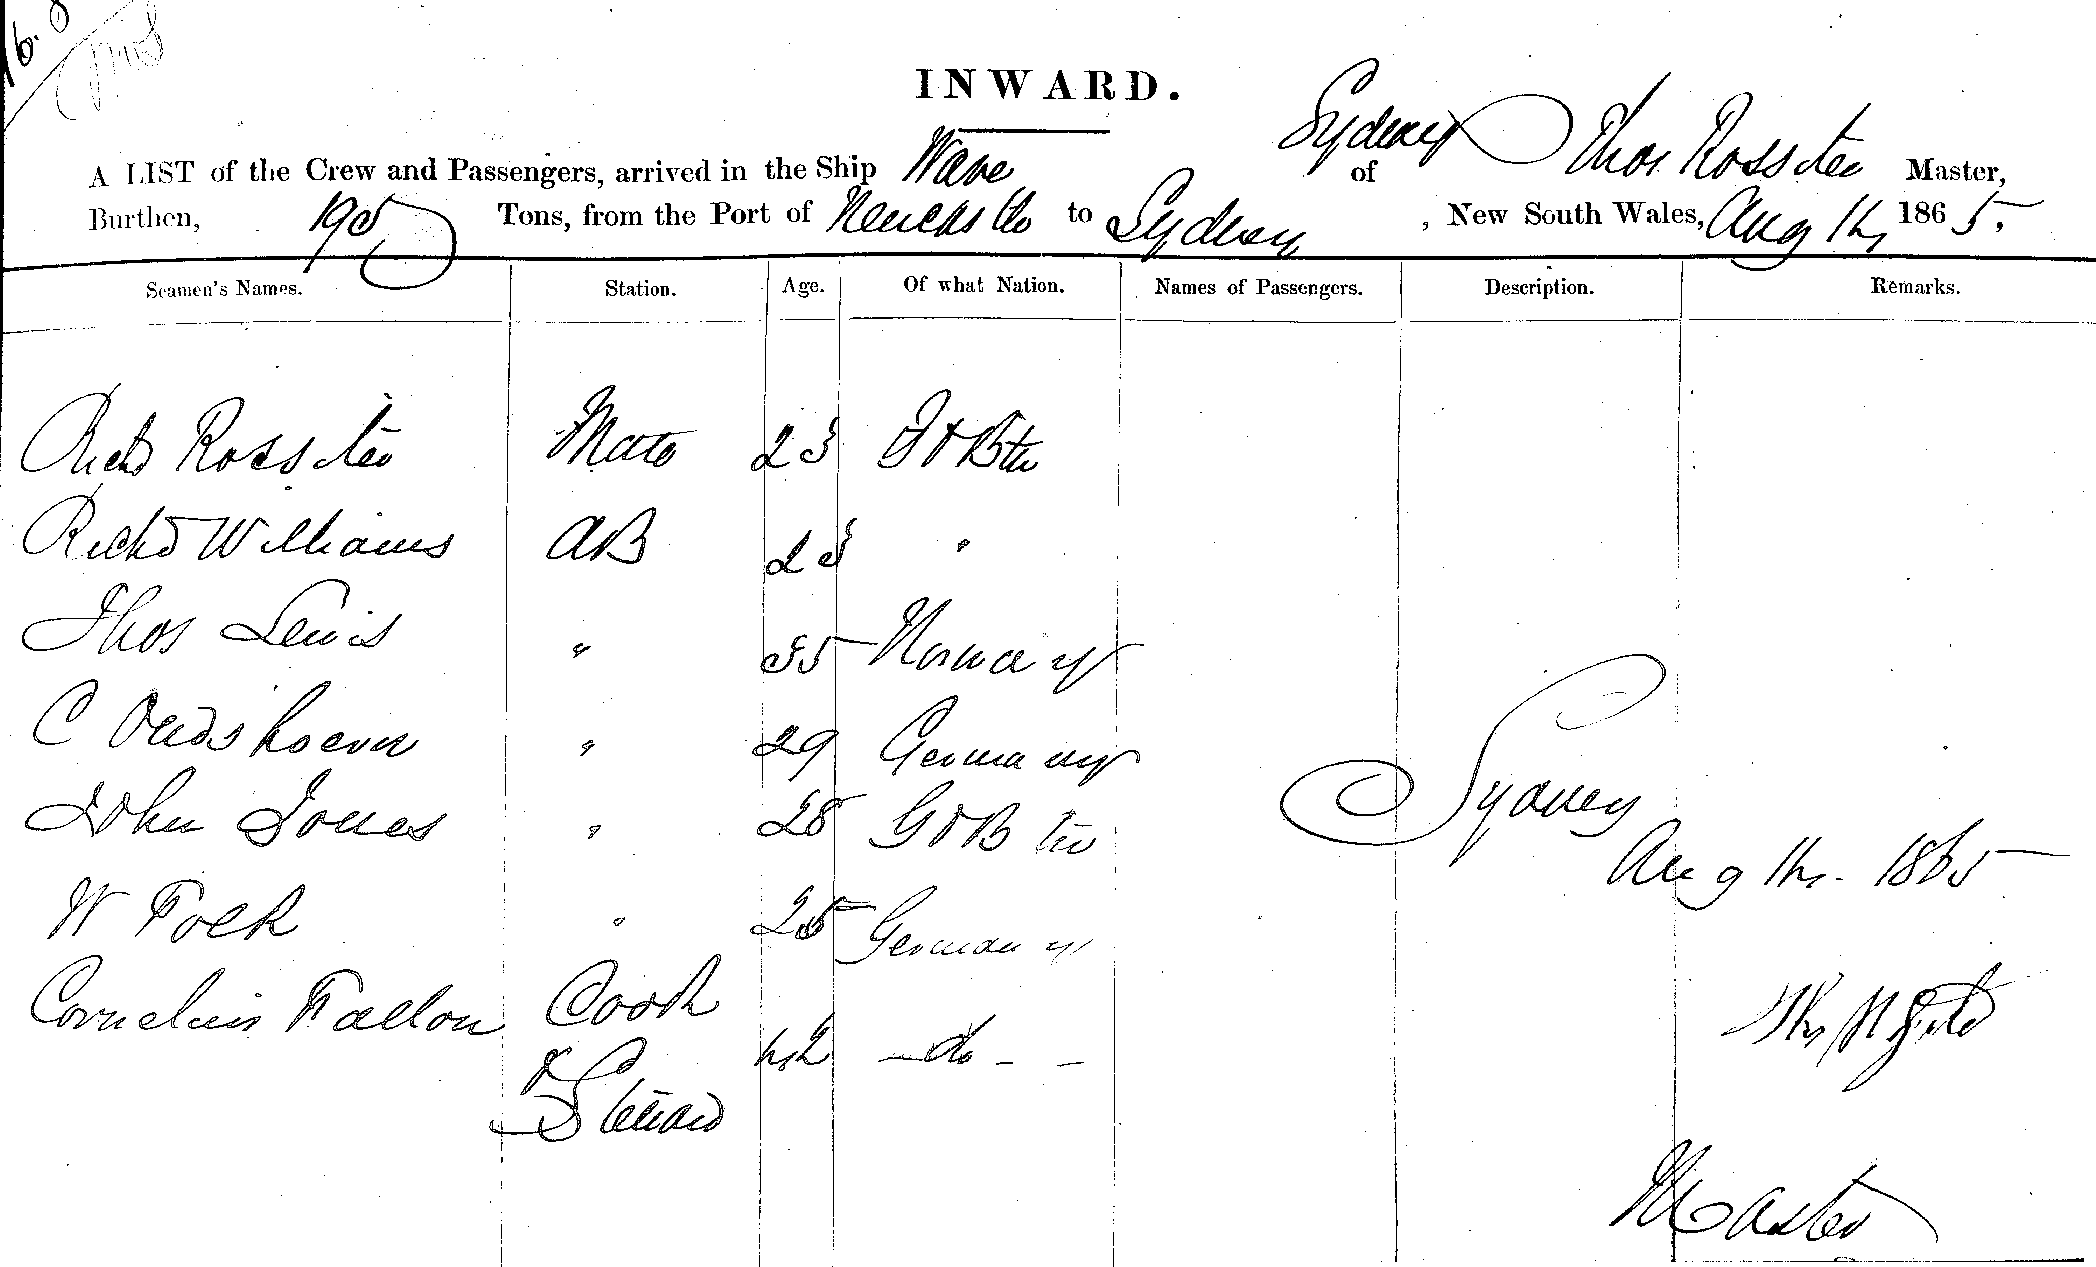 INWARD.
A LIST of the Crew and Passengers, arrived in the Ship Wave of Sydney Thos Rossiter Master,
Burthen, Tons, from the Port of Newcastle to Sydney, New South Wales, Aug 1865.
Seamen's Names. Station. Age. Of what Nation. Names of Passengers. Description. Remarks.
Richd Rossiter Mate 23
Richd Williams AB 23 "
Thos Lewis " 35 Norway
C " 29 Germany
John Jones " 28
W Fock " 25 Germany
Cornelius Fallon Cook 42 - do - -
& Steward
Sydney
Aug 1865
Master